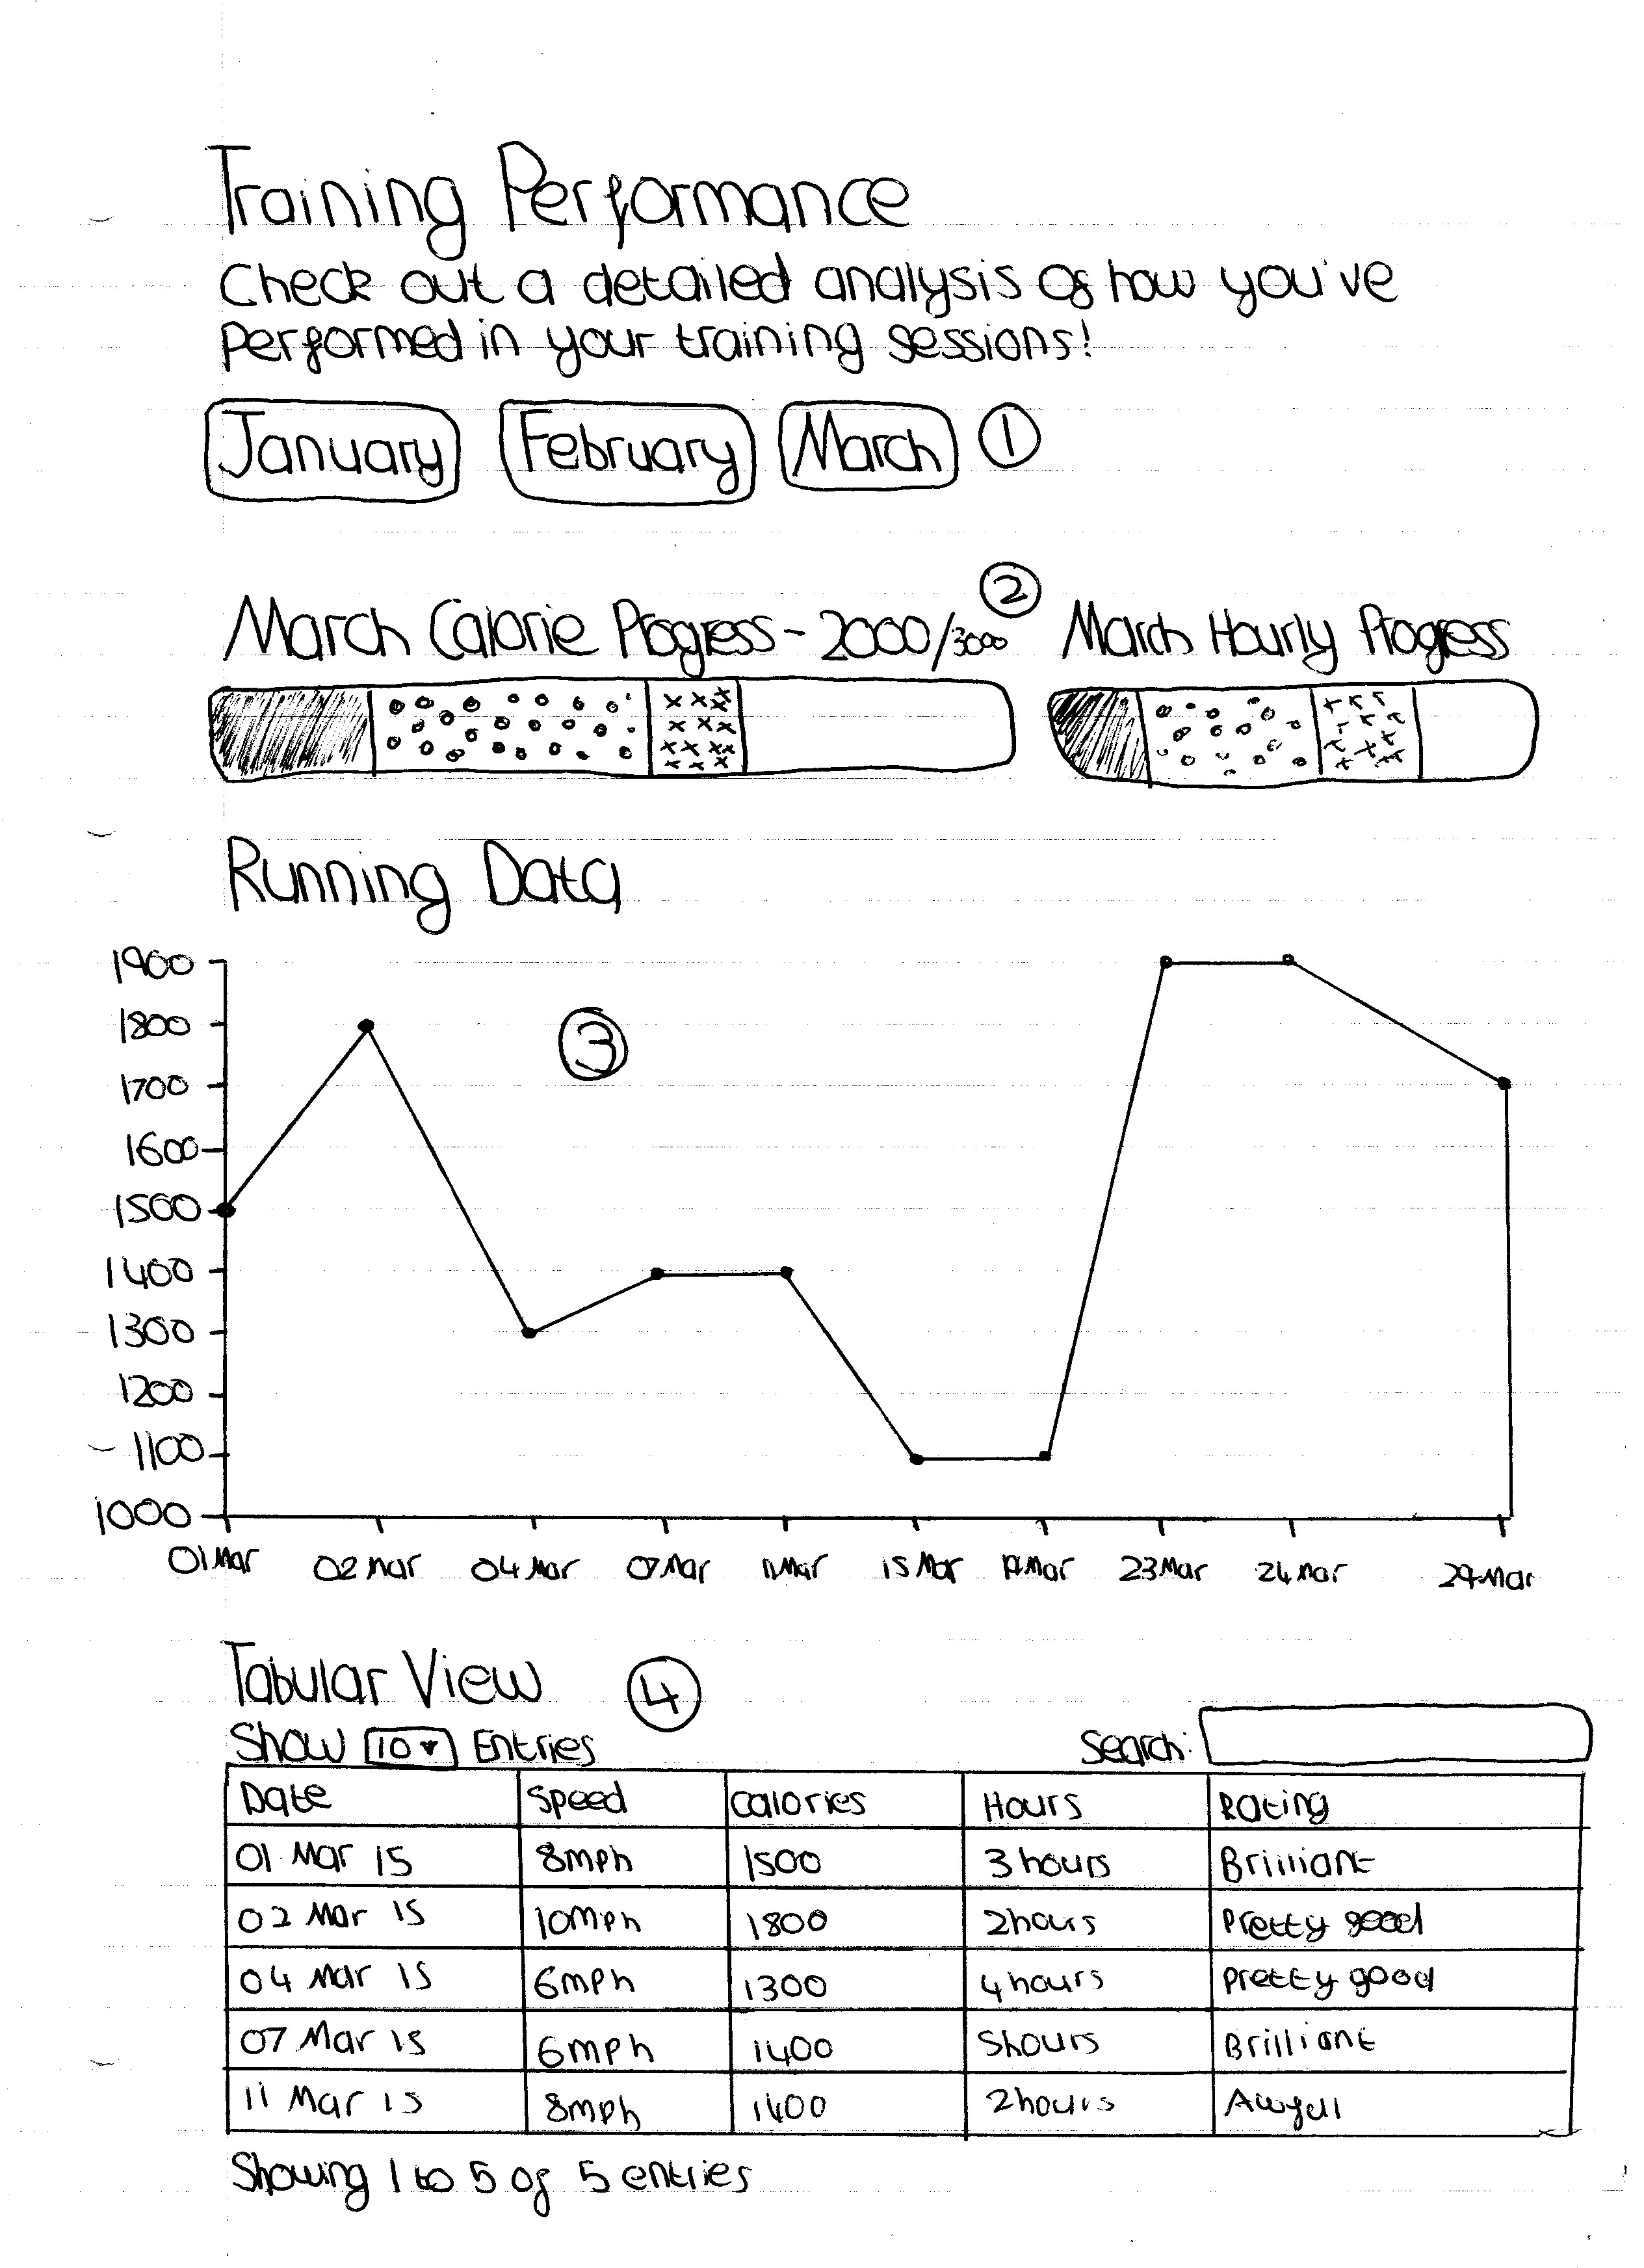 Training Performance
Check out a detailed analysis of how you've
performed in your training sessions!
January February March 1
2
March Calorie Progress - 2000/3000 March Hourly Progress
Running Data
1900
1800
3
1700
1600
1500
1400
1300
1200
1100
1000
01 Mar 02 Mar 04 Mar 07 Mar 11 Mar 15 Mar Mar 23 Mar 24 Mar 29 Mar
Tabular View 4
Show 10 Entries Search:
Date Speed Calories Hours Rating
01 Mar 15 8mph 1500 3 hours Brilliant
02 Mar 15 10mph 1800 2 hours Pretty good
04 Mar 15 6mph 1300 4 hours Pretty good
07 Mar 15 6mph 1400 5 hours Brilliant
11 Mar 15 8mph 1400 2 hours Awful
Showing 1 to 5 of 5 entries